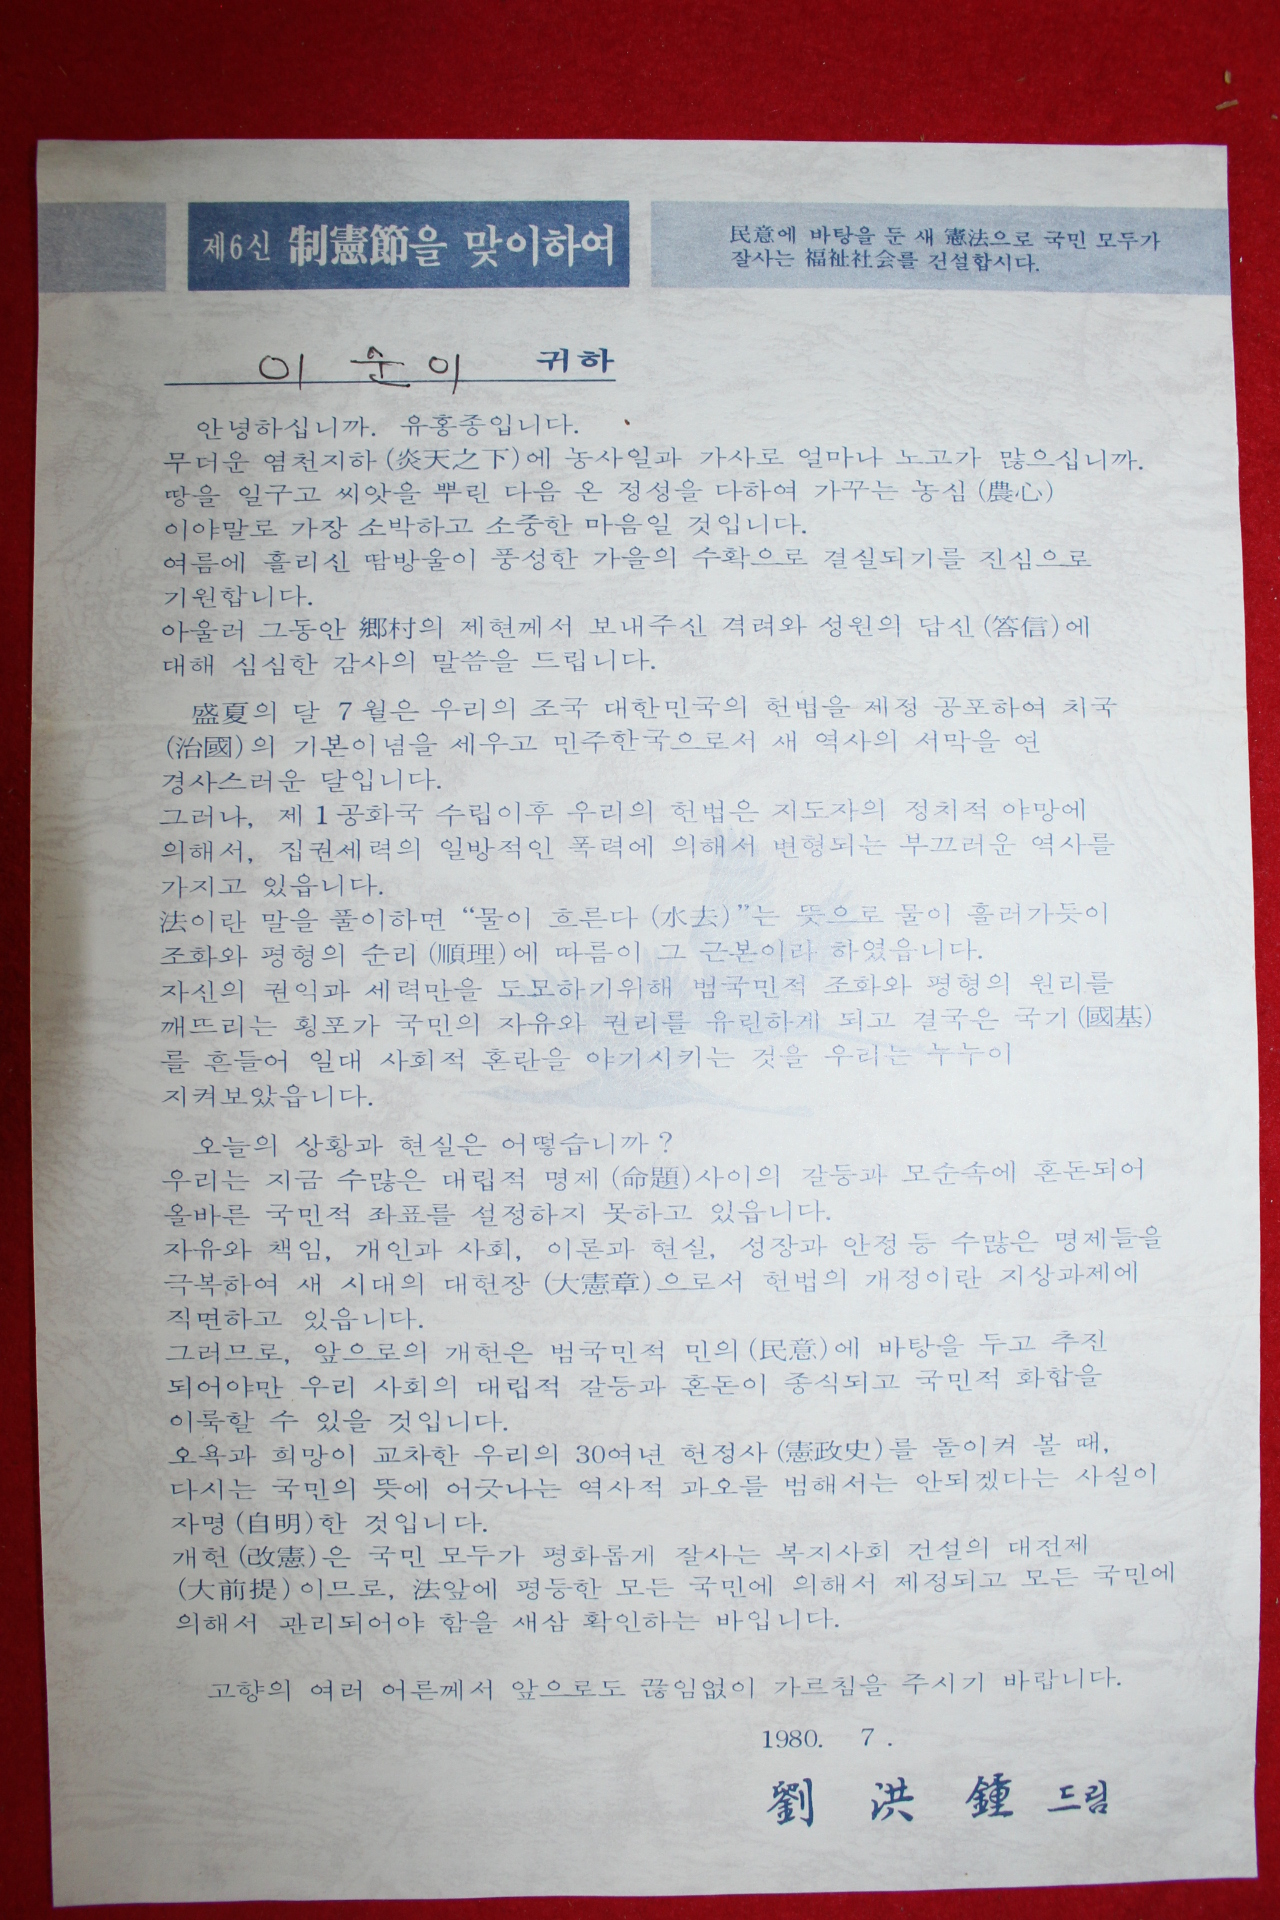 제6신 制憲節을 맞이하여
民意에 바탕을 둔 새 憲法으로 국민 모두가
잘사는 福祉社会를 건설합시다.
이 순이 귀하
안녕하십니까. 유홍종입니다.
무더운 염천지하(炎天之下)에 농사일과 가사로 얼마나 노고가 많으십니까.
땅을 일구고 씨앗을 뿌린 다음 온 정성을 다하여 가꾸는 농심(農心)
이야말로 가장 소박하고 소중한 마음일 것입니다.
여름에 흘리신 땀방울이 풍성한 가을의 수확으로 결실되기를 진심으로
기원합니다.
아울러 그동안 鄕村의 제현께서 보내주신 격려와 성원의 답신(答信)에
대해 심심한 감사의 말씀을 드립니다.
盛夏의 달 7월은 우리의 조국 대한민국의 헌법을 제정 공포하여 치국
(治國)의 기본이념을 세우고 민주한국으로서 새 역사의 서막을 연
경사스러운 달입니다.
그러나, 제1공화국 수립이후 우리의 헌법은 지도자의 정치적 야망에
의해서, 집권세력의 일방적인 폭력에 의해서 변형되는 부끄러운 역사를
가지고 있읍니다.
法이란 말을 풀이하면 “물이 흐른다(水去)”는 뜻으로 물이 흘러가듯이
조화와 평형의 순리(順理)에 따름이 그 근본이라 하였읍니다.
자신의 권익과 세력만을 도모하기위해 범국민적 조화와 평형의 원리를
깨뜨리는 횡포가 국민의 자유와 권리를 유린하게 되고 결국은 국기(國基)
를 흔들어 일대 사회적 혼란을 야기시키는 것을 우리는 누누이
지켜보았읍니다.
오늘의 상황과 현실은 어떻습니까?
우리는 지금 수많은 대립적 명제(命題)사이의 갈등과 모순속에 혼돈되어
올바른 국민적 좌표를 설정하지 못하고 있읍니다.
자유와 책임, 개인과 사회, 이론과 현실, 성장과 안정 등 수많은 명제들을
극복하여 새 시대의 대헌장(大憲章)으로서 헌법의 개정이란 지상과제에
직면하고 있읍니다.
그러므로, 앞으로의 개헌은 범국민적 민의(民意)에 바탕을 두고 추진
되어야만 우리 사회의 대립적 갈등과 혼돈이 종식되고 국민적 화합을
이룩할 수 있을 것입니다.
오욕과 희망이 교차한 우리의 30여년 헌정사(憲政史)를 돌이켜 볼 때,
다시는 국민의 뜻에 어긋나는 역사적 과오를 범해서는 안되겠다는 사실이
자명(自明)한 것입니다.
개헌(改憲)은 국민 모두가 평화롭게 잘사는 복지사회 건설의 대전제
(大前提)이므로, 法앞에 평등한 모든 국민에 의해서 제정되고 모든 국민에
의해서 관리되어야 함을 새삼 확인하는 바입니다.
고향의 여러 어른께서 앞으로도 끊임없이 가르침을 주시기 바랍니다.
1980. 7.
劉 洪 鍾 드림